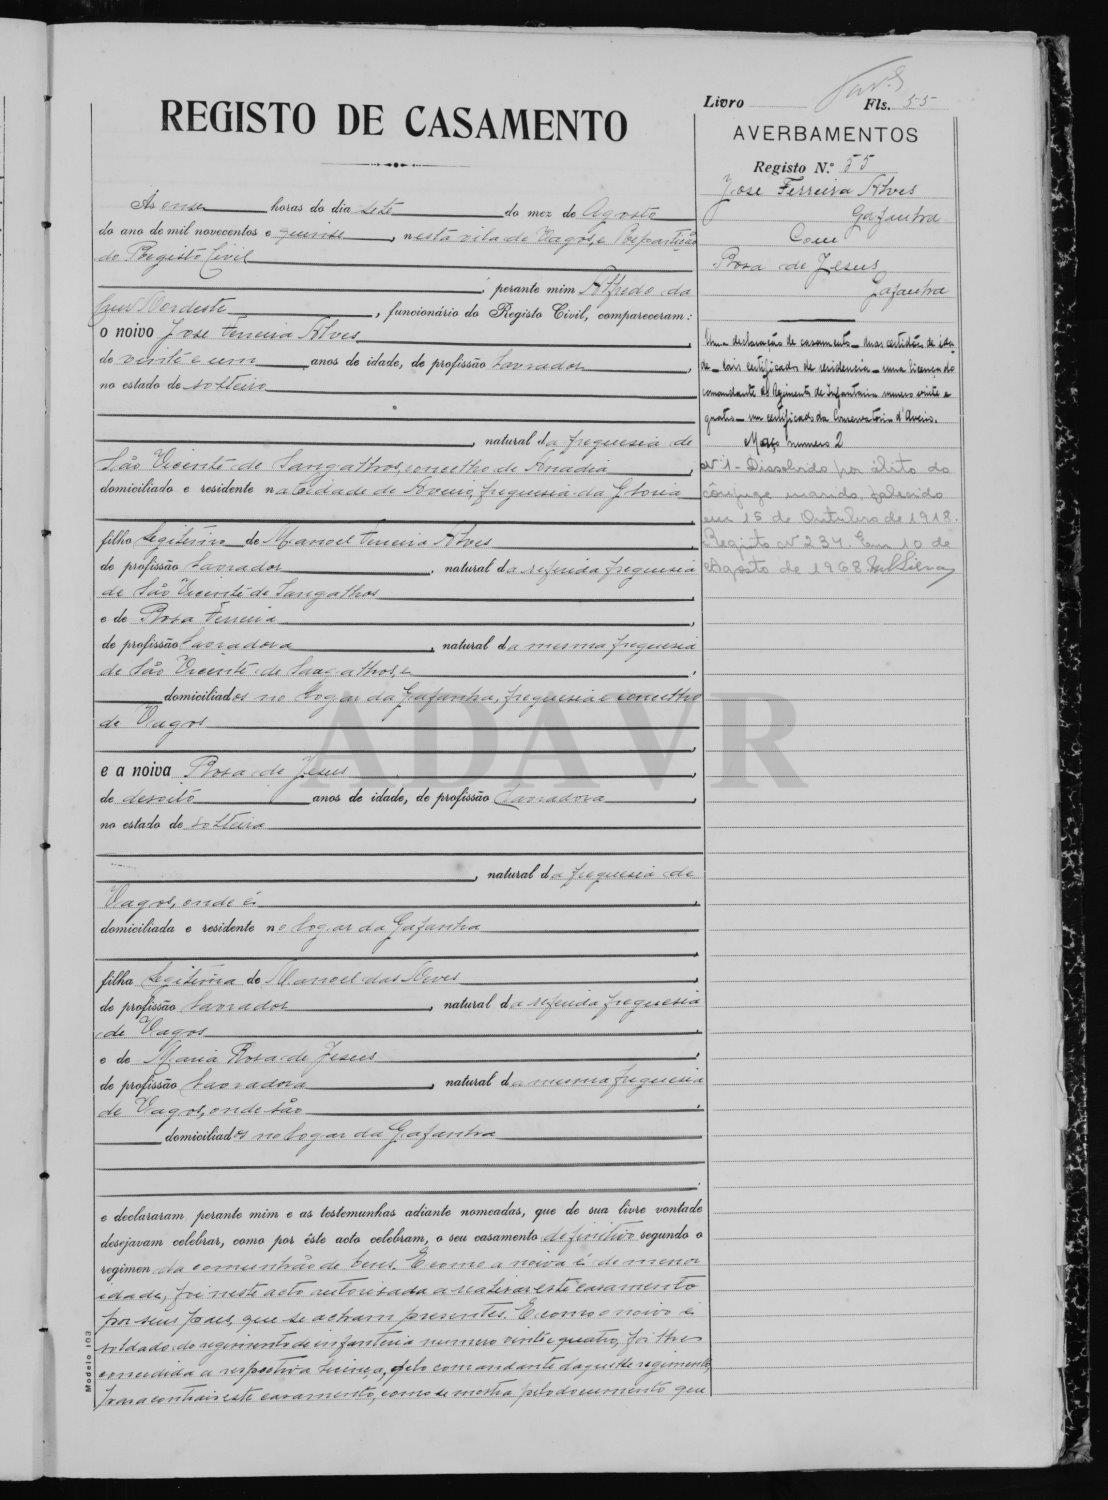 Livro Fls. 55
REGISTO DE CASAMENTO
AVERBAMENTOS
Registo N.º 55
José Ferreira Alves
Gafanha
Com
Rosa de Jesus
Gafanha
Uma declaração de casamento – duas certidões de ida-
de – dois certificados de residencia – uma licença do
comandante do Regimento de Infantaria numero vinte e
quatro – um certificado da Conservatoria d'Aveiro.
Maço numero 2
Nº 1 – Dissolvido por óbito do
cônjuge marido, falecido
em 15 de Outubro de 1918.
Registo nº 234. Em 10 de
Agosto de 1968
Ás onze horas do dia sete do mez de Agosto
do ano de mil novecentos e quinse, nesta vila de Vagos, e Repartição
do Registo Civil
, perante mim Alfredo da
Cruz Nordeste, funcionário do Registo Civil, compareceram:
o noivo José Ferreira Alves
de vinte e um anos de idade, de profissão Lavrador,
no estado de solteiro
, natural da freguesia de
São Vicente de Sangalhos, concelho de Anadia,
domiciliado e residente na cidade de Aveiro, freguesia da Gloria
filho legitimo de Manoel Ferreira Alves
de profissão Lavrador, natural da referida freguesia
de São Vicente de Sangalhos,
e de Rosa Ferreira,
de profissão Lavradora, natural da mesma freguesia
de São Vicente de Sangalhos, e,
domiciliados no logar da Gafanha, freguesia e concelho
de Vagos,
e a noiva Rosa de Jesus,
de desoito anos de idade, de profissão Lavradora,
no estado de solteira
, natural da freguesia de
Vagos, onde é,
domiciliada e residente no logar da Gafanha
filha legitima de Manoel das Neves,
de profissão Lavrador, natural da referida freguesia
de Vagos,
e de Maria Rosa de Jesus,
de profissão Lavradora, natural da mesma freguesia
de Vagos, onde são,
domiciliados no logar da Gafanha
e declararam perante mim e as testemunhas adiante nomeadas, que de sua livre vontade
desejavam celebrar, como por êste acto celebram, o seu casamento definitivo segundo o
regimen da comunhão de bens. E como a noiva é de menor
idade, foi neste acto autorisada a realisar este casamento
por seus paes, que se acham presentes. E como o noivo é
soldado do regimento de infanteria numero vinte e quatro, foi-lhe
concedida a respectiva licença, pelo comandante daquele regimento,
para contrair este casamento, como se mostra pelo documento que
Modelo 103
ADAVR